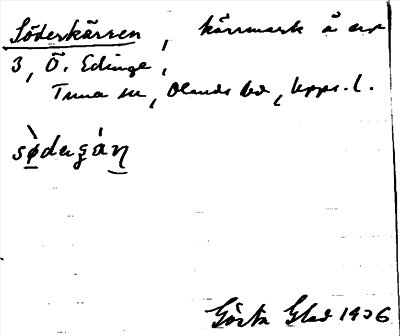 Söderkärren, kärrmark å erp
3, Ö. Edinge,
Tuna sn, Olands hd, Upps. l.
sø̀dergán
Gösta Glad 1936